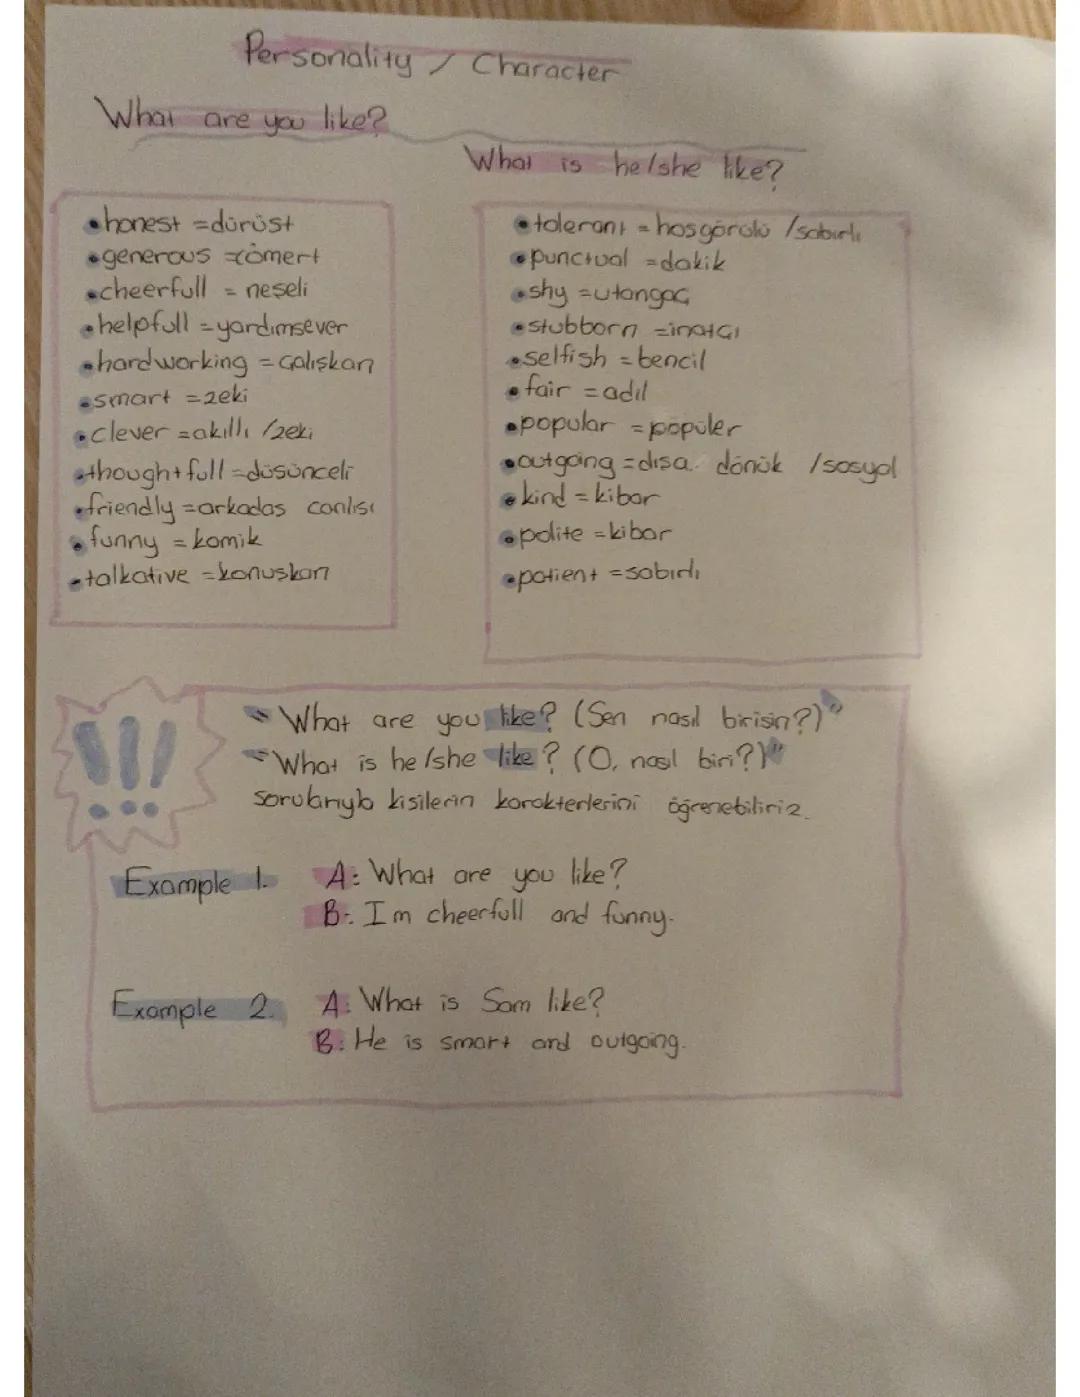 Personality / Character
What are you like?
What is he/she like?
• honest = dürüst
• generous = cömert
• cheerfull = neşeli
• helpfull = yardımsever
• hardworking = çalışkan
• smart = zeki
• clever = akıllı /zeki
• thoughtfull = düşünceli
• friendly = arkadaş canlısı
• funny = komik
• talkative = konuşkan
• tolerant = hoşgörülü /sabırlı
• punctual = dakik
• shy = utangaç
• stubborn = inatçı
• selfish = bencil
• fair = adil
• popular = popüler
• outgoing = dışa dönük /sosyal
• kind = kibar
• polite = kibar
• patient = sabırlı
!!!
"What are you like? (Sen nasıl birisin?)"
"What is he/she like? (O, nasıl biri?)"
sorularıyla kişilerin karakterlerini öğrenebiliriz.
Example 1. A: What are you like?
B: I'm cheerfull and funny.
Example 2. A: What is Sam like?
B: He is smart and outgoing.